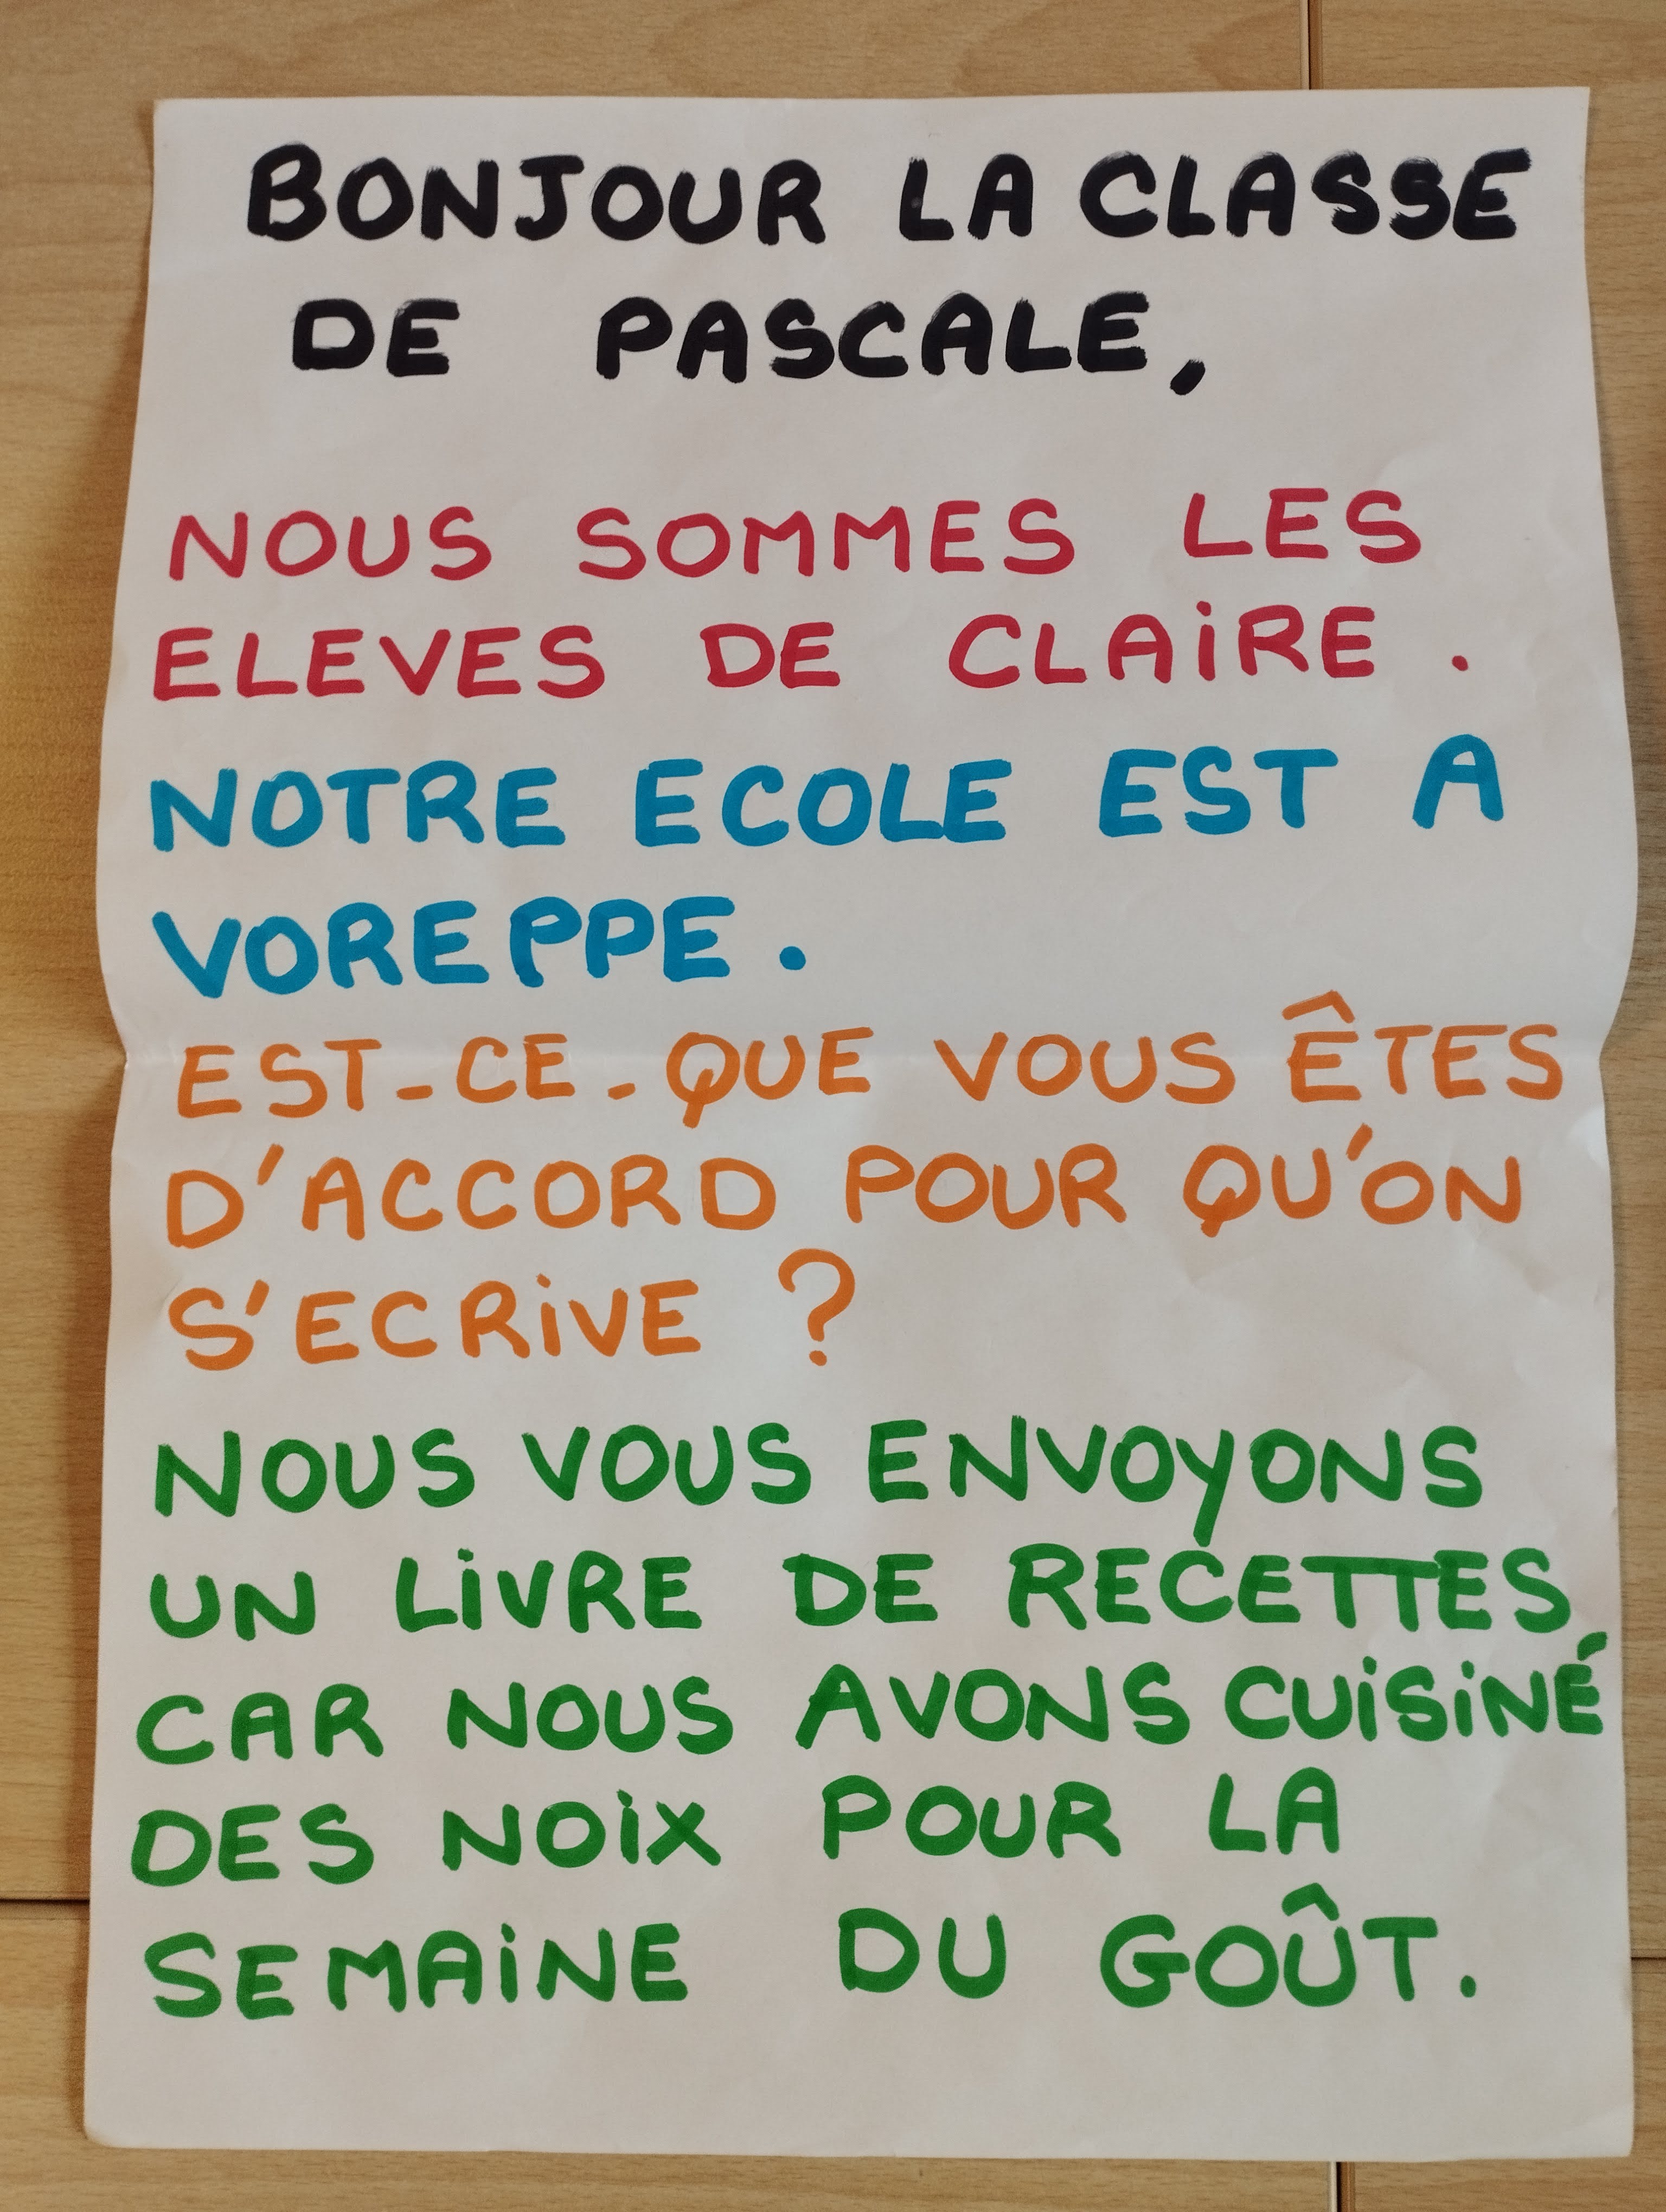 BONJOUR LA CLASSE
DE PASCALE,
NOUS SOMMES LES
ELEVES DE CLAiRE.
NOTRE ECOLE EST A
VOREPPE.
EST-CE-QUE VOUS ÊTES
D'ACCORD POUR QU'ON
S'ECRiVE ?
NOUS VOUS ENVOYONS
UN LiVRE DE RECETTES
CAR NOUS AVONS CUiSiNÉ
DES NOiX POUR LA
SEMAiNE DU GOÛT.